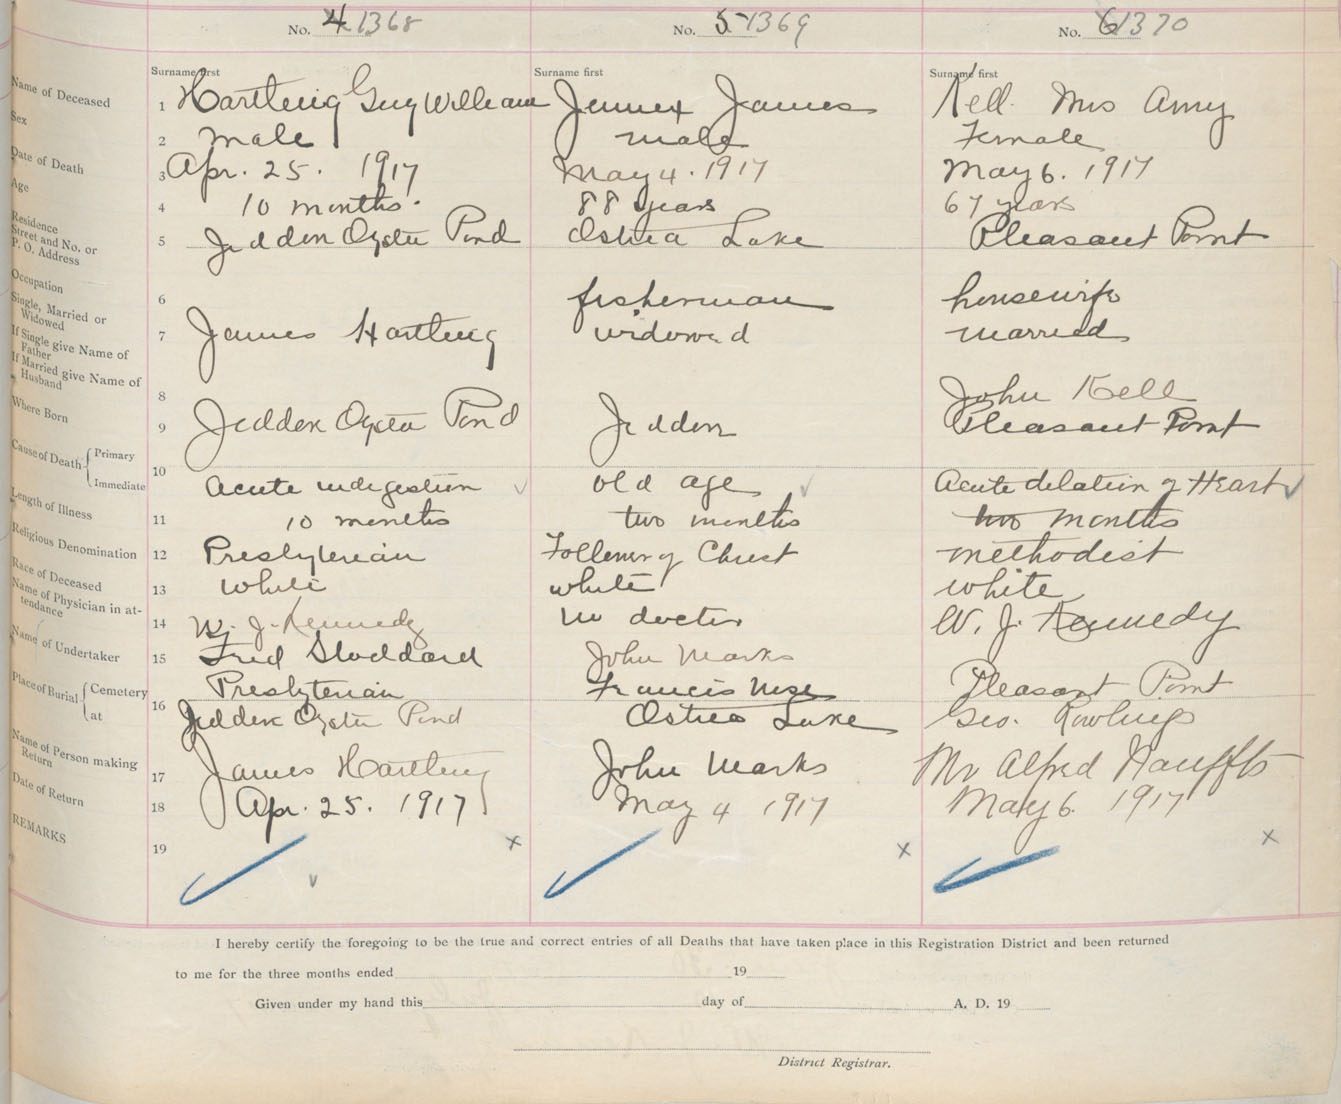 No. 4 1368 No. 5 1369 No. 6 1370
Surname first Surname first Surname first
Name of Deceased 1 Hartling Guy William Jennex James Kell Mrs Amy
Sex 2 male male Female
Date of Death 3 Apr. 25. 1917 May 4. 1917 May 6. 1917
Age 4 10 months. 88 years 67 years
Residence Street and No. or P. O. Address 5 Jeddore Oyster Pond Ostrea Lake Pleasant Point
Occupation 6 fisherman housewife
Single, Married or Widowed 7 James Hartling widowed married
If Single give Name of Father
If Married give Name of Husband 8 John Kell
Where Born 9 Jeddore Oyster Pond Jeddore Pleasant Point
Cause of Death Primary 10
Immediate Acute indigestion old age Acute dilation of Heart
Length of Illness 11 10 months two months two months
Religious Denomination 12 Presbyterian Follower of Christ methodist
Race of Deceased 13 white white white
Name of Physician in attendance 14 W. J. Kennedy no doctor W. J. Kennedy
Name of Undertaker 15 Fred Stoddard John Marks Pleasant Point
Place of Burial Cemetery 16 Presbyterian Francis Geo. Rowlings
at Jeddore Oyster Pond Ostrea Lake
Name of Person making Return 17 James Hartling John Marks Mr Alfred
Date of Return 18 Apr. 25. 1917 May 4 1917 May 6. 1917
REMARKS 19 x x x
I hereby certify the foregoing to be the true and correct entries of all Deaths that have taken place in this Registration District and been returned
to me for the three months ended 19
Given under my hand this day of A. D. 19
District Registrar.